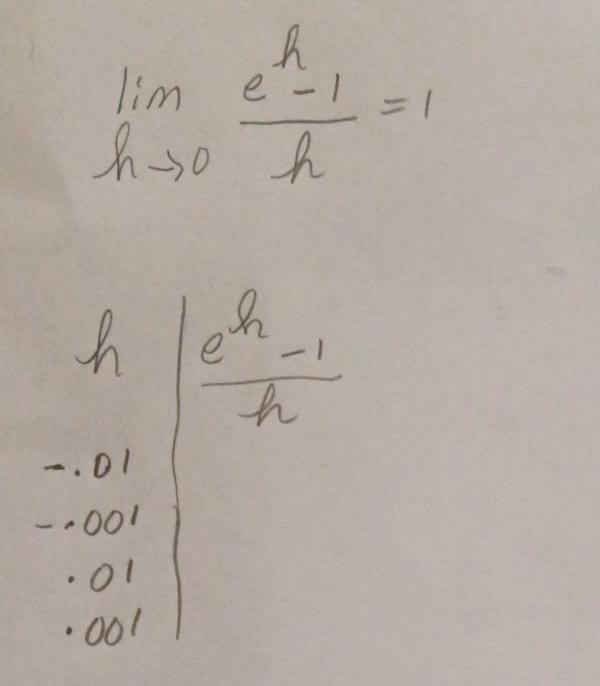 lim h→0 (e^h - 1)/h = 1
h | (e^h - 1)/h
-.01
-.001
.01
.001